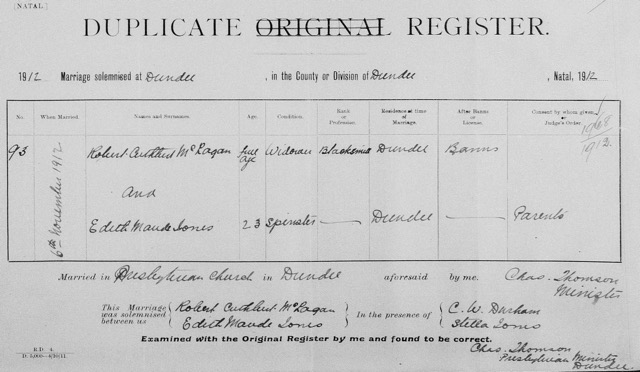 [NATAL]
DUPLICATE ORIGINAL REGISTER.
1912 Marriage solemnised at Dundee, in the County or Division of Dundee, Natal, 1912
No. When Married. Names and Surnames. Age. Condition. Rank or Profession. Residence at time of Marriage. After Banns or License. Consent by whom given, or Judge's Order.
1912.
93 6th November 1912 Robert Cuthbert McLagan full age Widower Blacksmith Dundee Banns
and
Edith Maude Jones 23 Spinster — Dundee — Parents
Married in Presbyterian Church in Dundee aforesaid by me. Chas. Thomson
Minister
This Marriage was solemnised between us Robert Cuthbert McLagan
Edith Maude Jones
In the presence of C. W. Durham
Stella Jones
Examined with the Original Register by me and found to be correct.
R.D. 4.
Chas. Thomson
Presbyterian Minister
Dundee